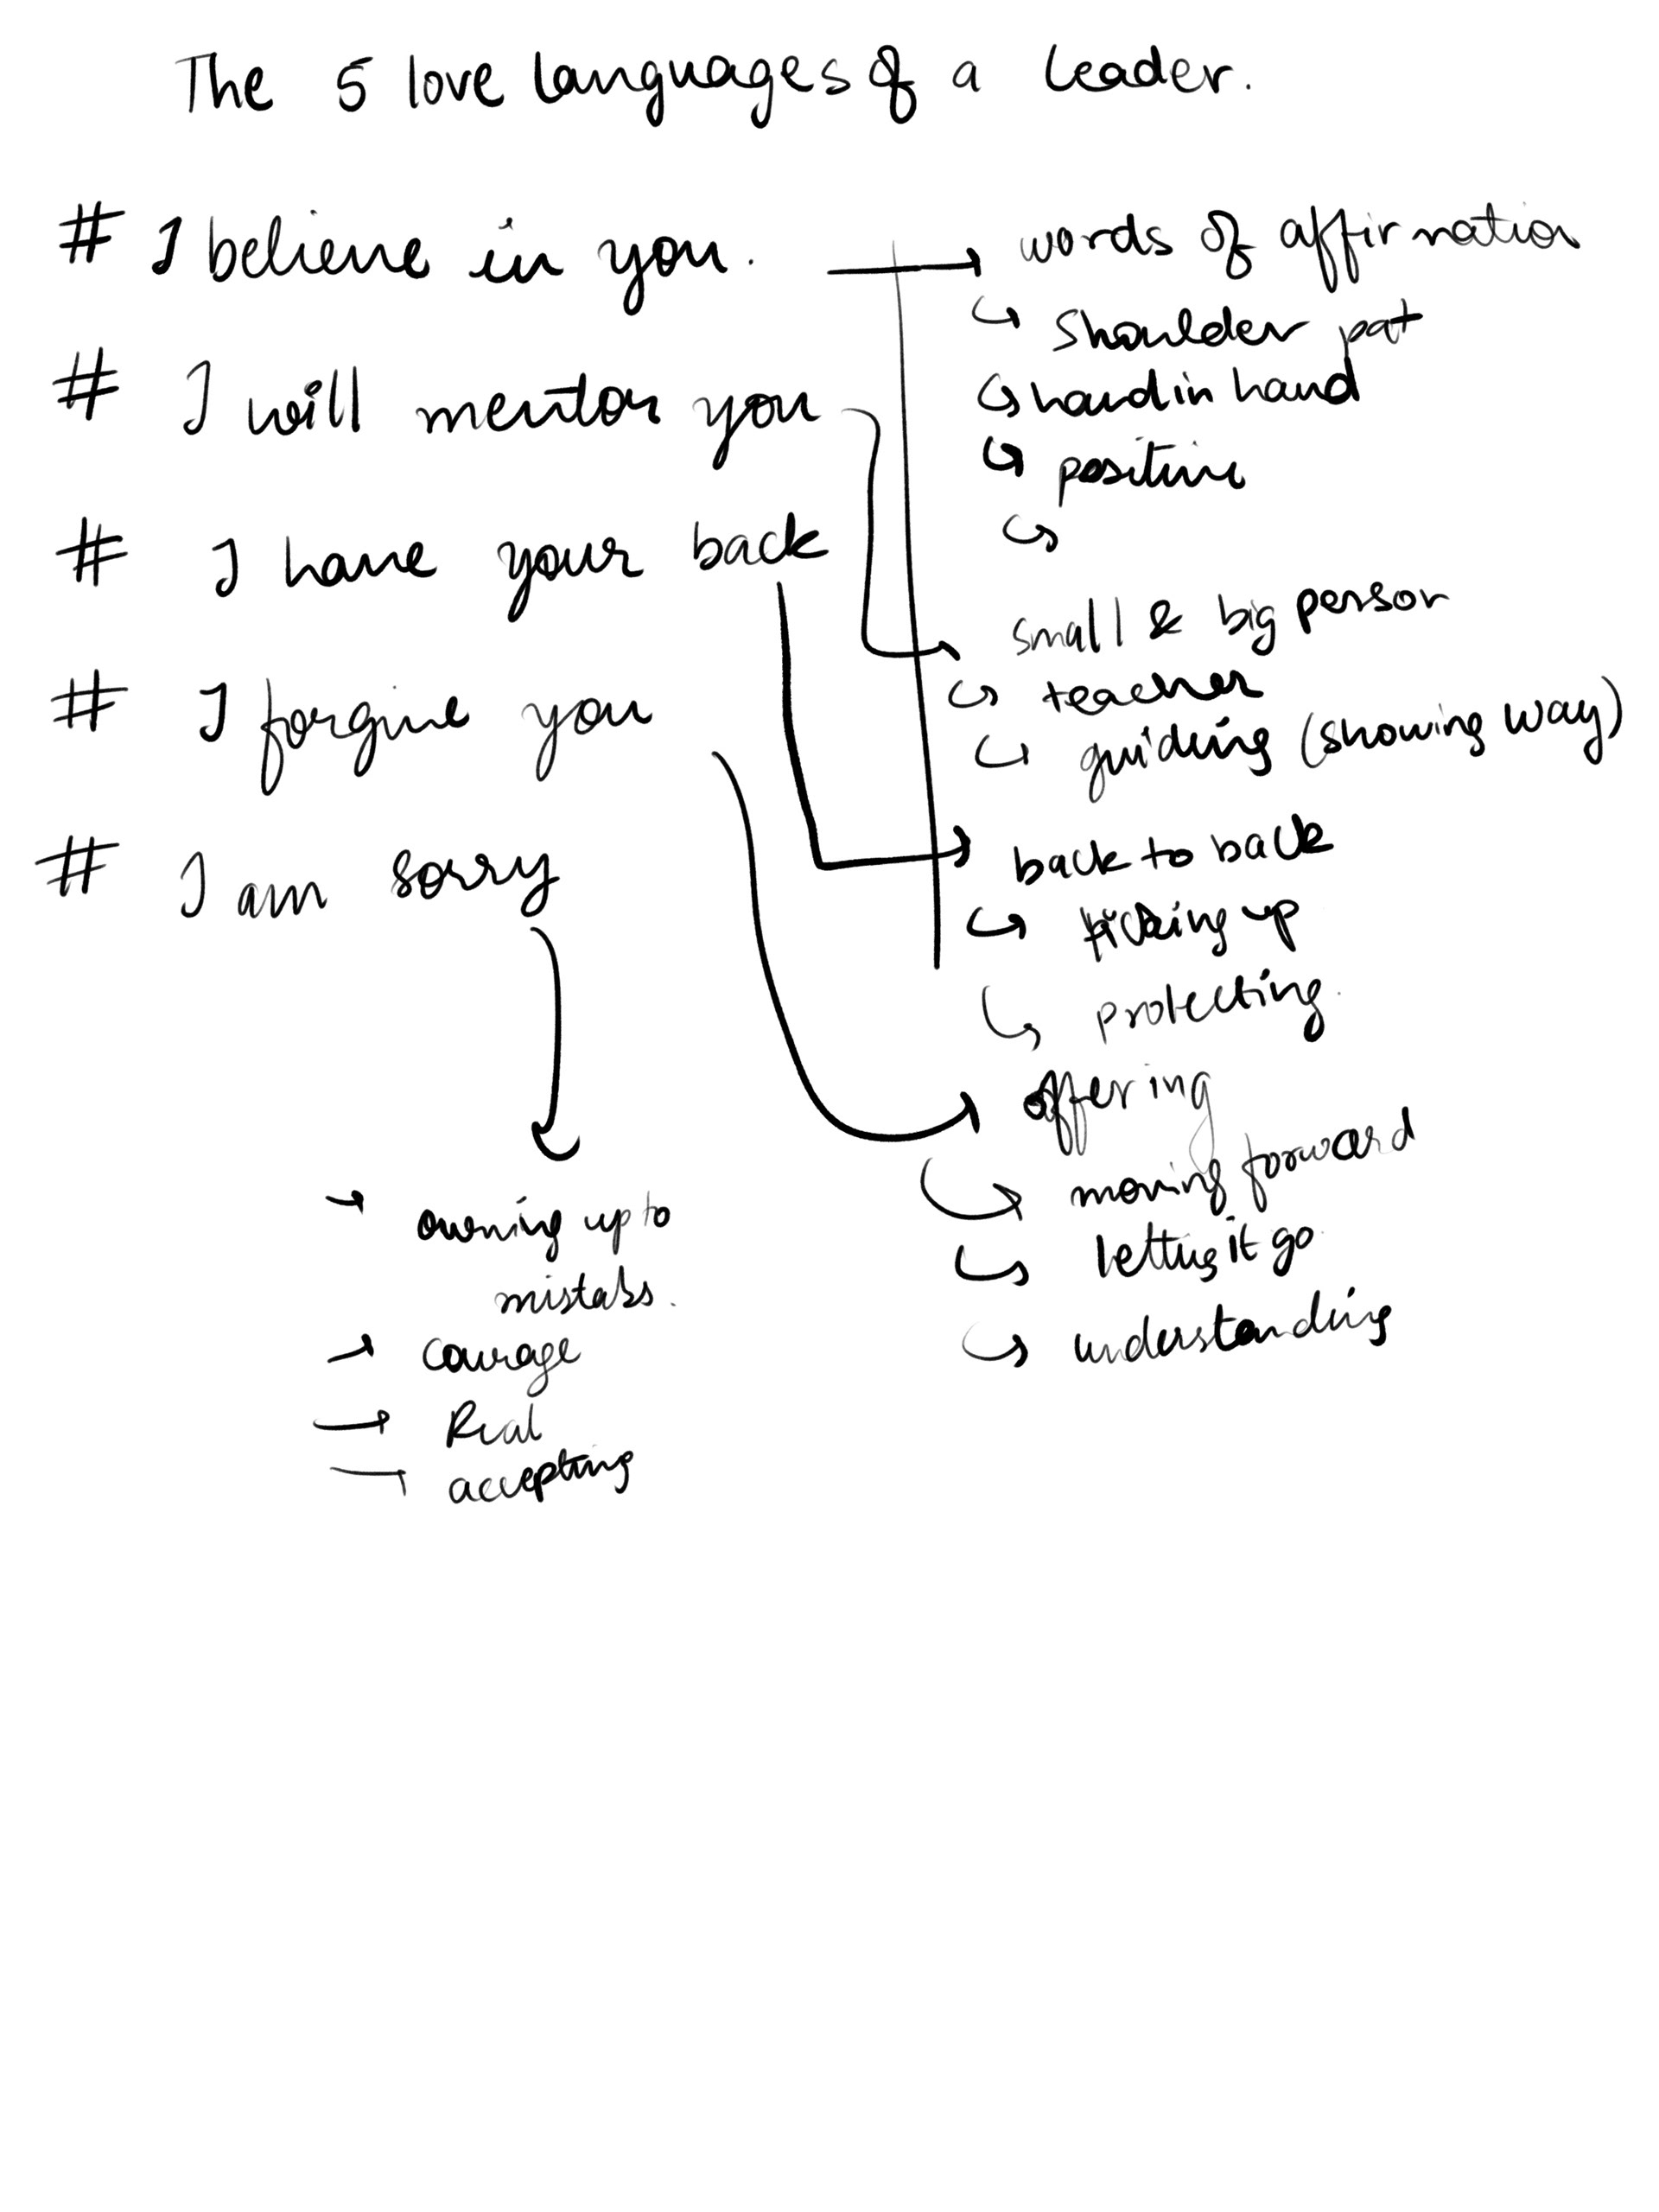 The 5 love languages of a leader.
# I believe in you.
# I will mentor you
# I have your back
# I forgive you
# I am sorry
words of affirmation
shoulder pat
hand in hand
positive
small & big person
teacher
guiding (showing way)
back to back
up
protecting.
offering
moving forward
letting it go
understanding
owning up to
mistakes.
courage
Real
accepting